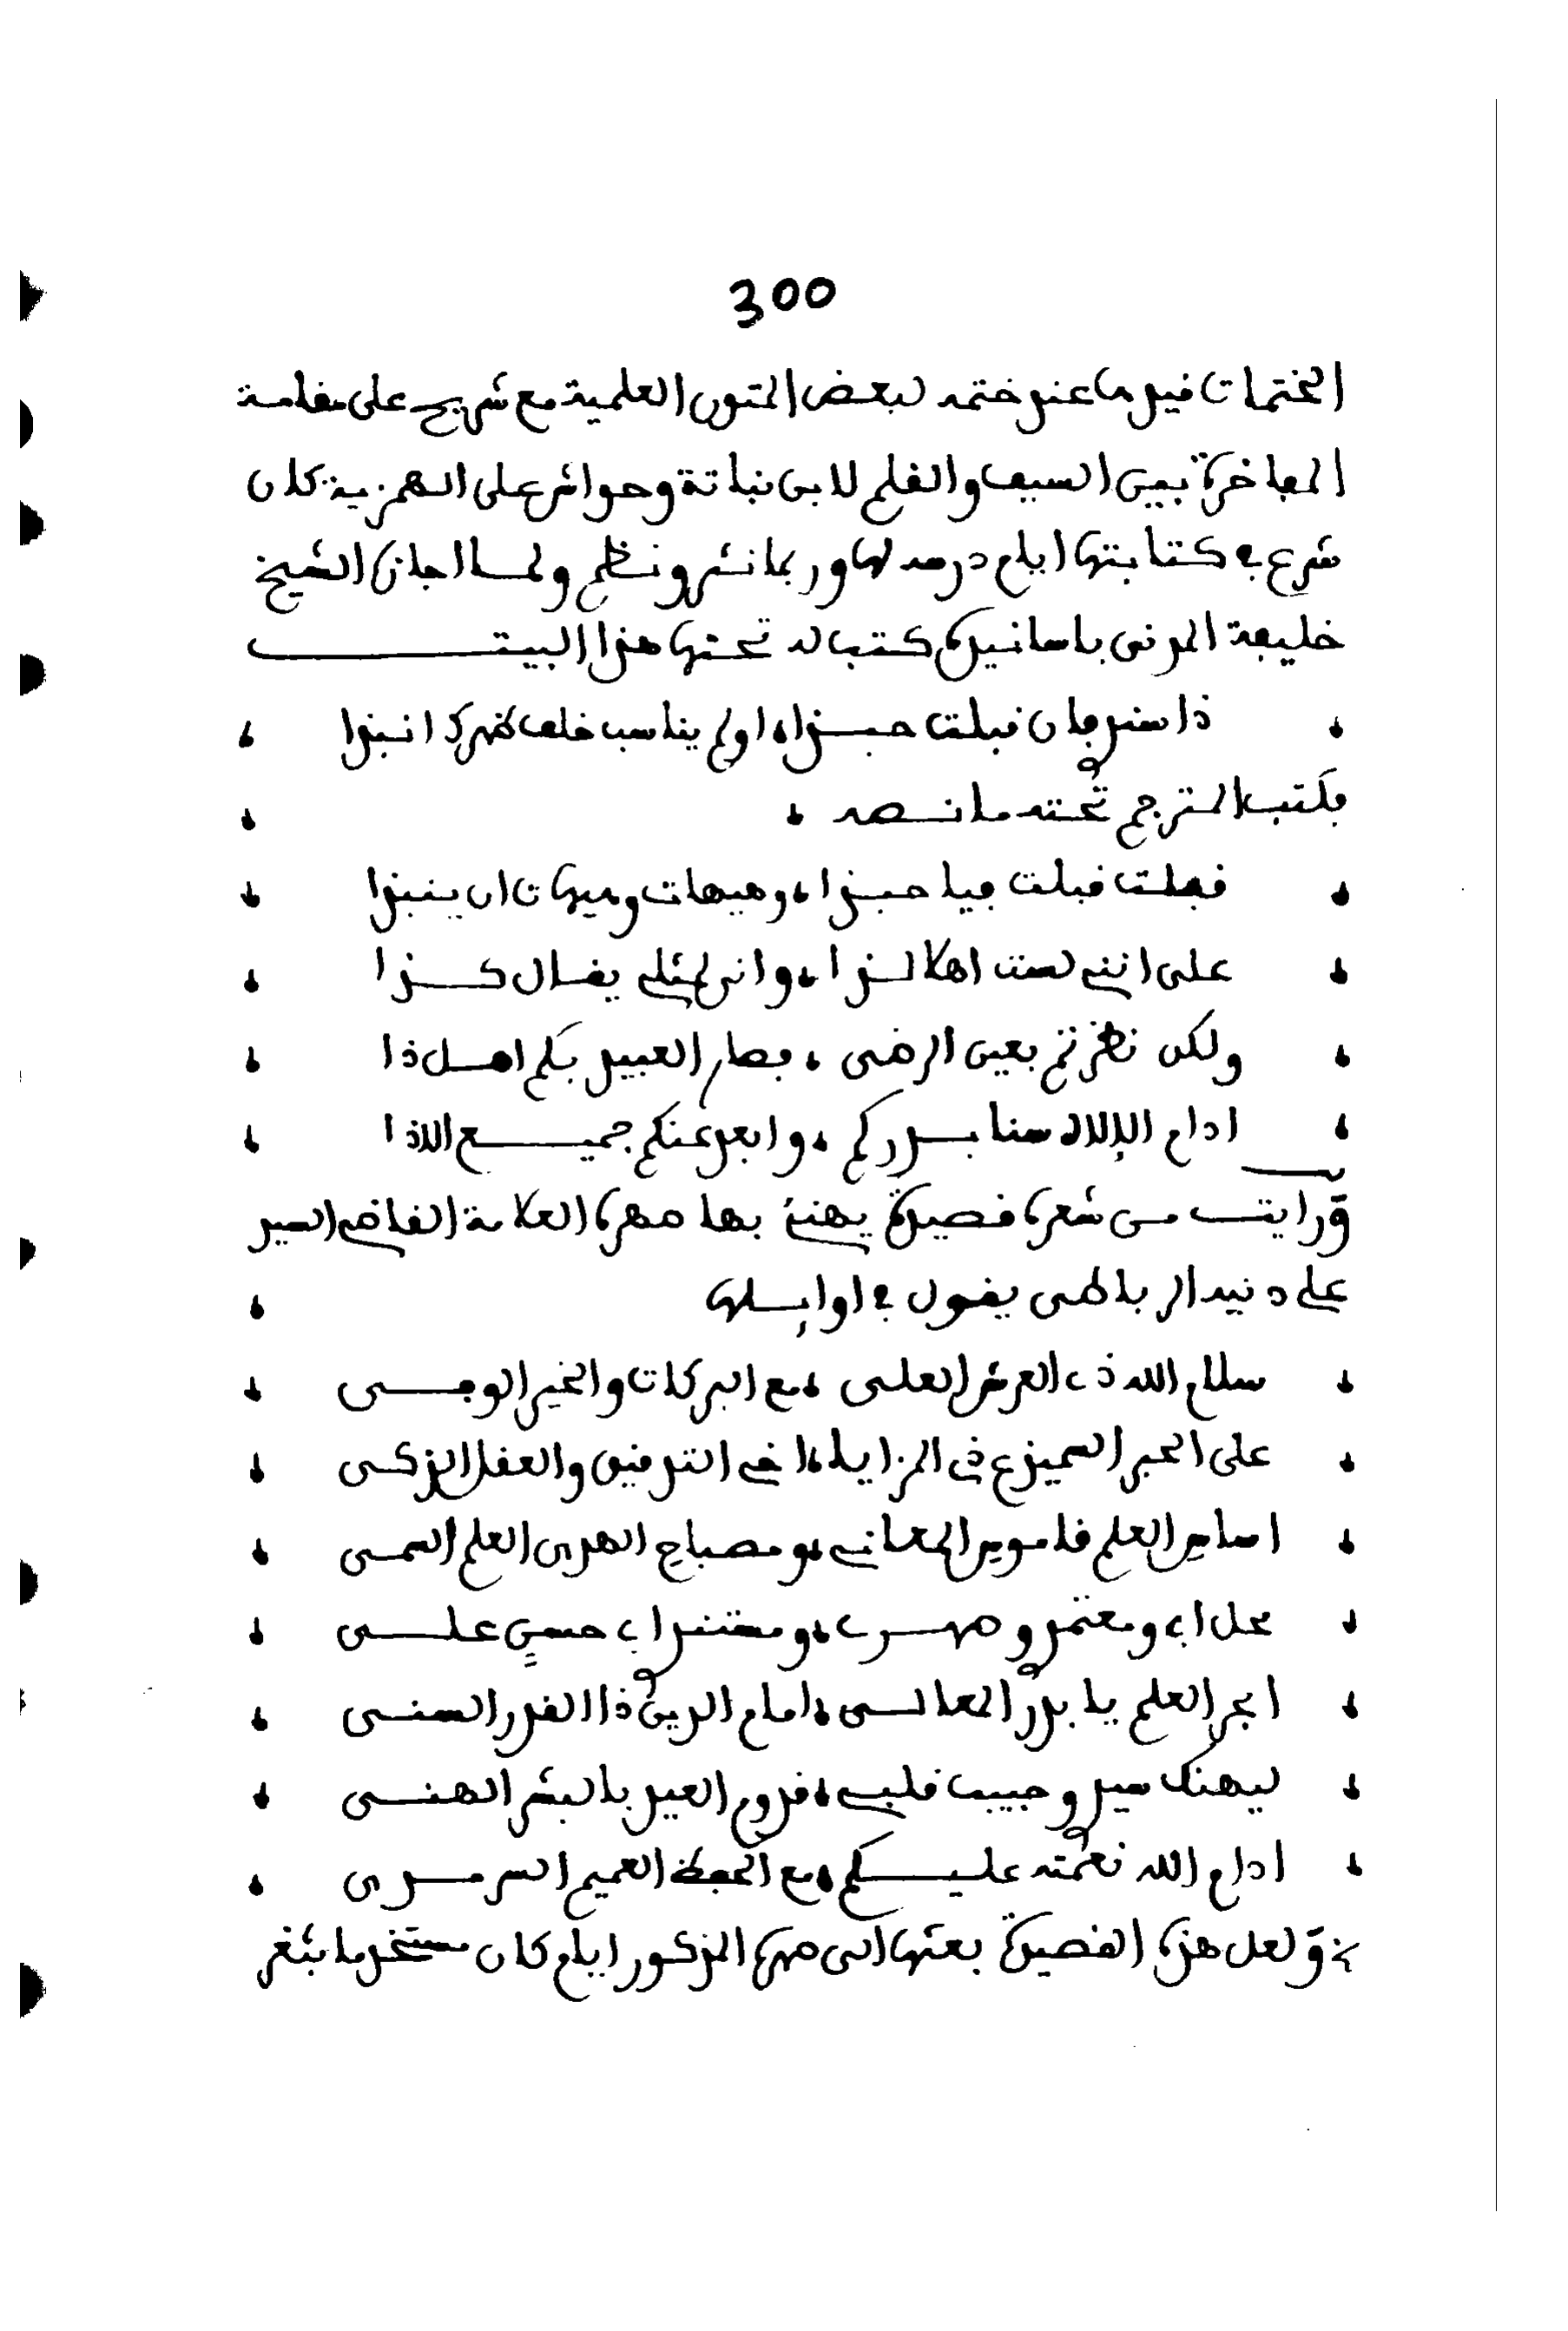 300
الختمات قيدها عند ختمه لبعض المتون العلمية مع شريح على مقامة
المفاخرة بين السيف والقلم لابن نباتة وحواش على الهمزية كان
شرع في كتابتها ايام درسه لها وربما نثر ونظم ولما اجازه الشيخ
خليفة المدني باسانيده كتب له تحتها هذا البيت
ذا سند فان قبلت حبذا، اولم يناسب خلف ظهرك انبذا
فكتب المترجم تحته ما نصه
فعلت قبلت فيا حبذا، وهيهات وهيهات ان ينبذا
على انني لست اهلا لذا، وانى لمثلي يقال كذا
ولكن نظرتم بعين الرضى، فصار العبيد بكم اهل ذا
ادام الإلاه سنا بدركم، وابعد عنكم جميع الاذا
ورايت من شعره قصيدة يهنئ بها صهره العلامة القاضي السيد
علي دنيه الرباطي يقول في اوايلها
سلام الله ذي العرش العلى، مع البركات والخير الوفى
على الحبر السميذع ذي المزايا، اخي التوفيق والعقل الزكى
اساس العلم قاموس المعاني، ومصباح الهدى العلم السمى
محل ابي ومعتمدي وصهري، ومستندي ابي حسن على
ابحر العلم يا بدر المعالى، امام الدين ذا القدر السنى
ليهنك سيدي وحبيب قلبي، قدوم العيد بالبشر الهنى
ادام الله نعمته عليكم، مع الحفظ العميم السرمدى
ولعل هذه القصيدة بعثها الى صهره المذكور ايام كان مستخدما بثغر